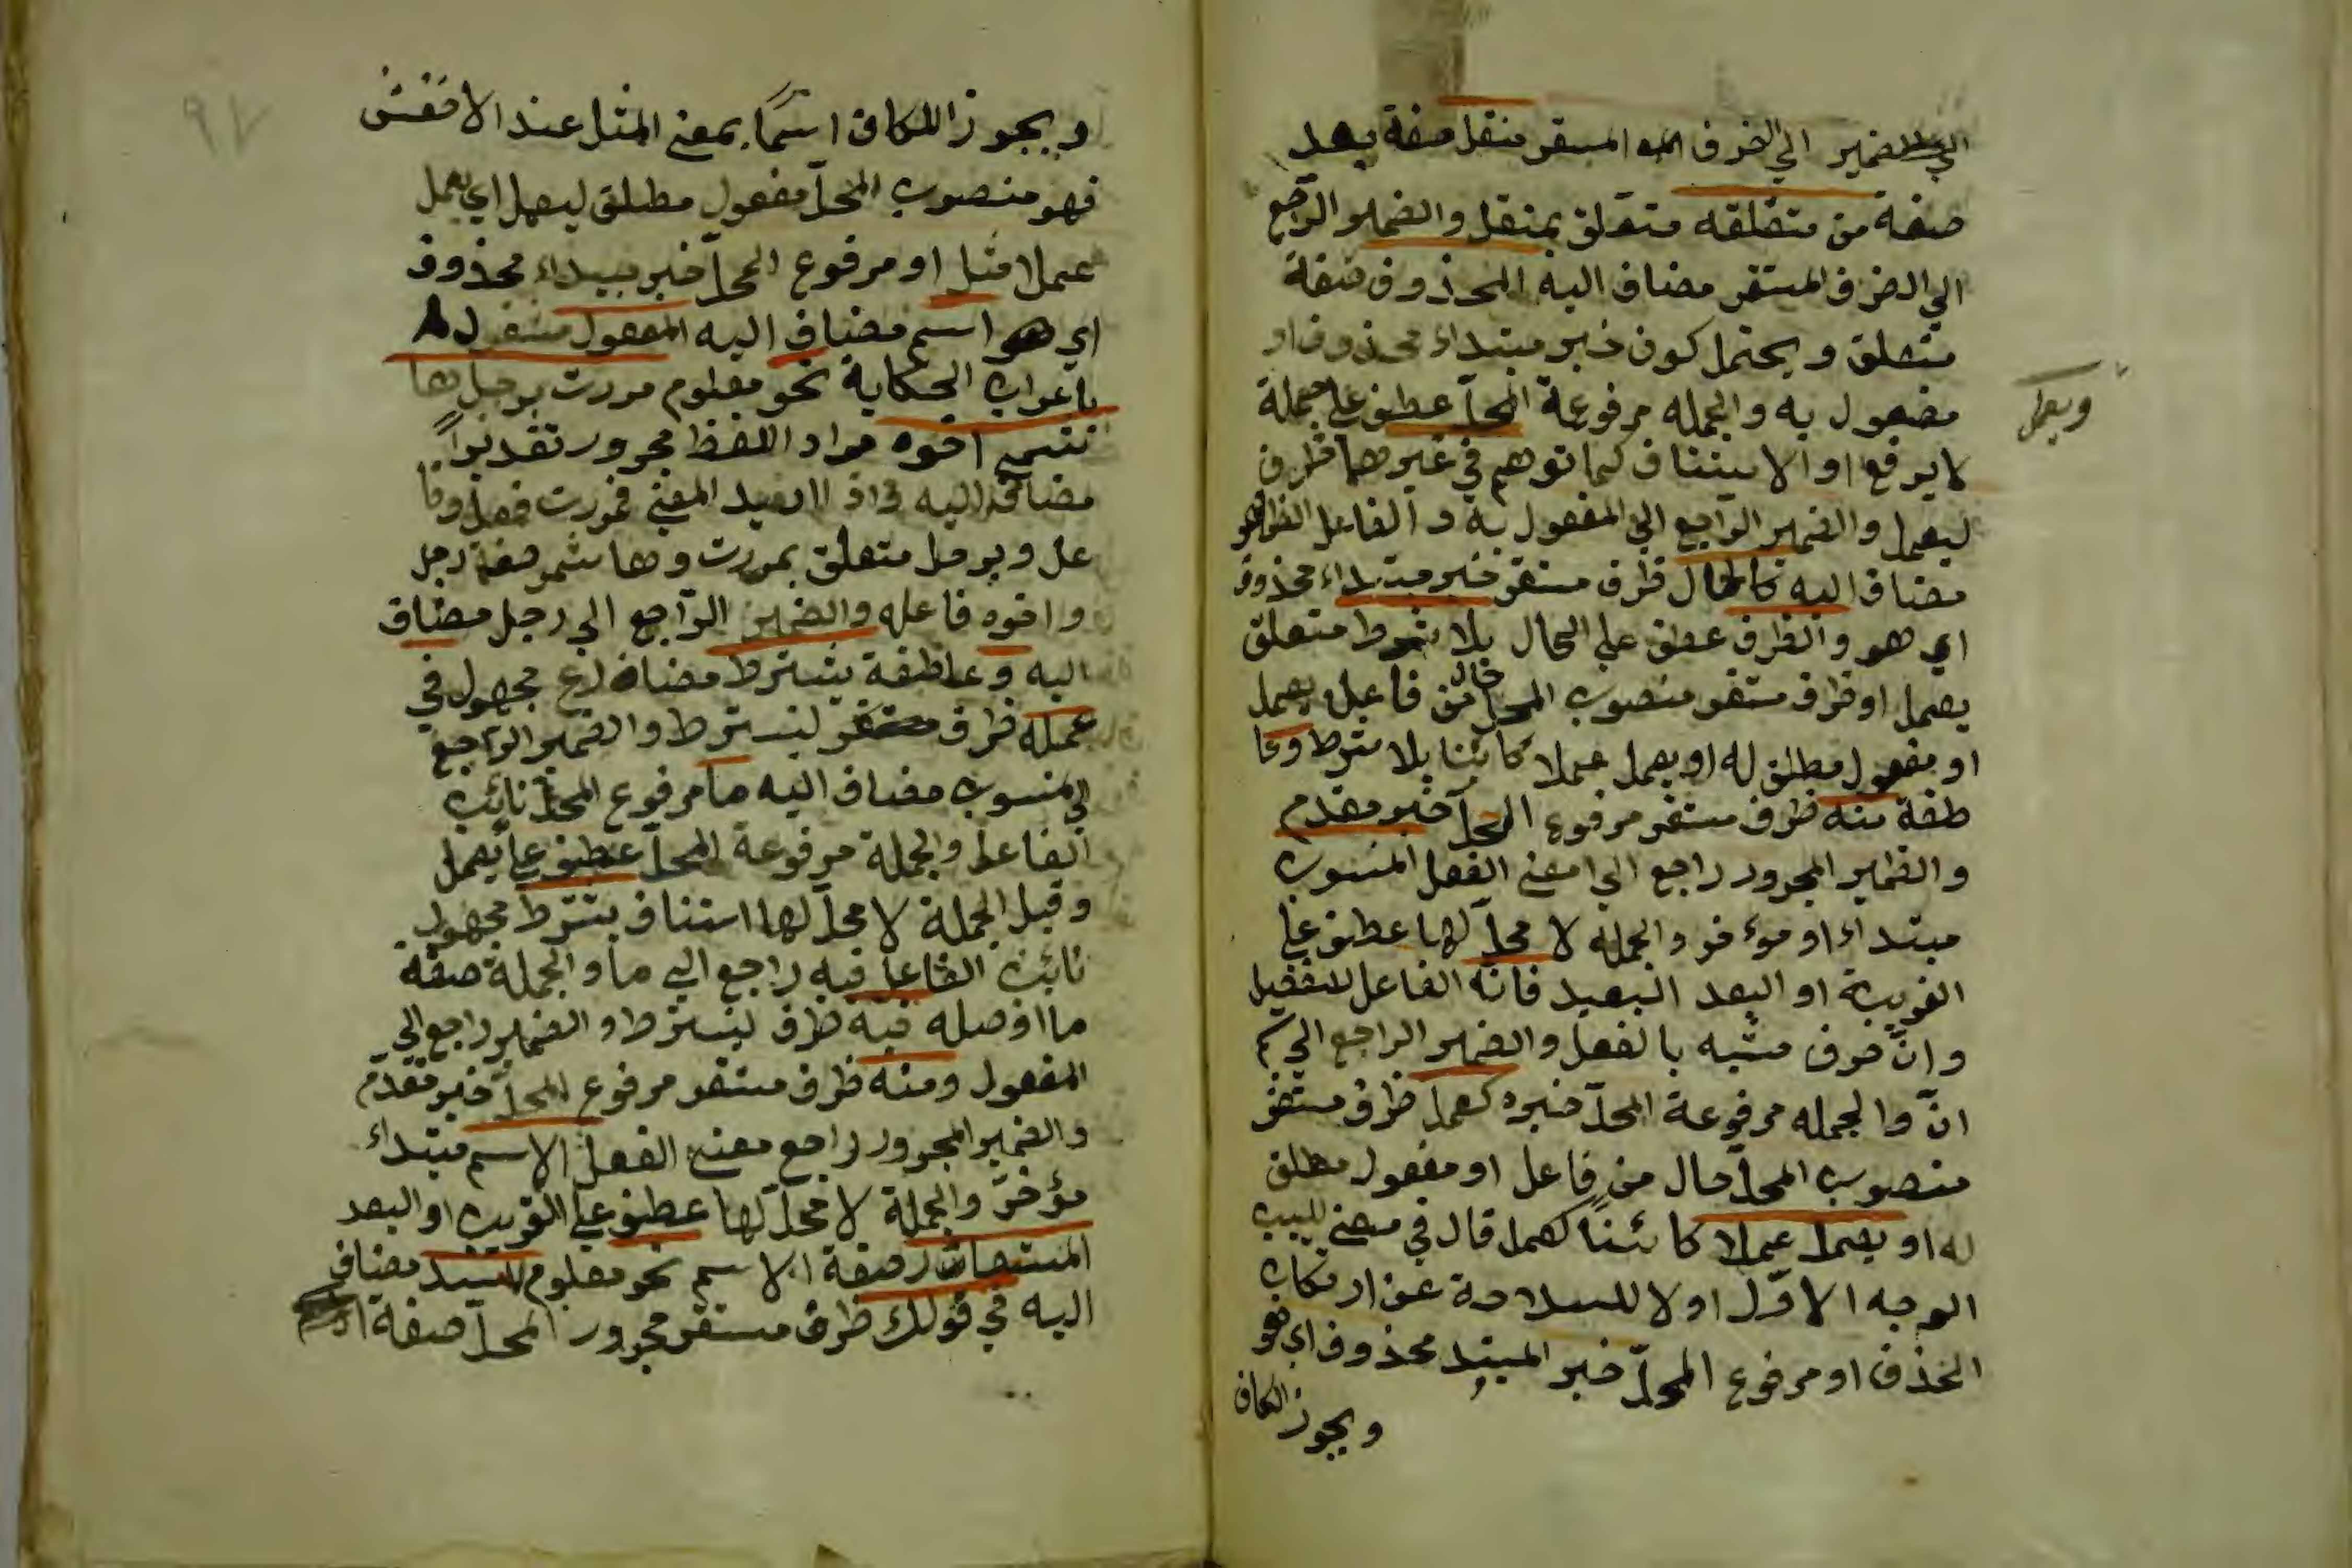 الضمير الي الظرف المستقر منتقل صفة بعد
صفة من متعلقه متعلق بمنتقل والضمير الراجع
الي الضرف المستقر مضاف اليه المحذوف صفة
متعلق ويحتمل كون خبر مبتداء محذوف او
مفعول به والجمله مرفوعة المحل عطف علي جملة
ويعمل
لا يرفع او الاستيناف كما توهم في غيرهما ظرف
ليعمل والضمير الراجع الي المفعول به و الفاعل
مضاف اليه كالحال ظرف مستقر خبر مبتداء محذوف
اي هو والظرف عطف علي الحال بلا شرط متعلق
يعمل او ظرف مستقر منصوب المحل حال من فاعل يعمل
او مفعول مطلق له او يعمل عملا كائنا بلا شرط وعا
طفة منه ظرف مستقر مرفوع المحل خبر مقدم
والضمير المجرور راجع الي معني الفعل المنسوب
مبتداء او موءخر والجملة لا محل لها عطف علي
القريبة او البعد البعيد فانه الفاعل للتفصيل
وان حرف مشبه بالفعل والضمير الراجع الي اسم
ان والجمله مرفوعة المحل خبره كعمل ظرف مستقر
منصوب المحل حال من فاعل او مفعول مطلق
له او يعمل عملا كائناً كعمل قال في معني اللبيب
الوجه الاوّل اولا للسلامة عن ارتكاب
الحذف او مرفوع المحل خبر المبتدا محذوف اي هو
ويجوز الكاف
ويجوز الكاف اسمًا بمعني المثل عند الاخفش
فهو منصوب المحل مفعول مطلق ليعمل اي يعمل
عملا مثل او مرفوع المحل خبر مبتداء محذوف
اي هو اسم مضاف اليه المفعول مشغول
باعراب الحكاية نحو معلوم مررت برجل ها
شم اخوه مراد اللفظ مجرور تقديراً
مضاف اليه واذا اريد المعني فمررت فعل وفا
عل وبرجل متعلق بمررت وهاشم صفة رجل
واخوه فاعله والضمير الراجع الي رجل مضاف
اليه وعاطفة يشترط مضارع مجهول في
عمله ظرف ليشترط والضمير الراجع
الي المنسوب مضاف اليه ما مرفوع المحل نائب
الفاعل والجملة مرفوعة المحل عطف علي يعمل
وقيل الجملة لا محل لها استئناف يشترط مجهول
نائب الفاعل فيه راجع الي ما والجملة صفة
ما او صله فيه ظرف ليشترط والضمير راجع الي
المفعول ومنه ظرف مستقر مرفوع المحل خبر مقدم
والضمير المجرور راجع معني الفعل الاسم مبتداء
مؤخر والجملة لا محل لها عطف علي القريب او البعد
صفة الاسم نحو معلوم مضاف
اليه في قولك ظرف مستقر مجرور المحل صفة